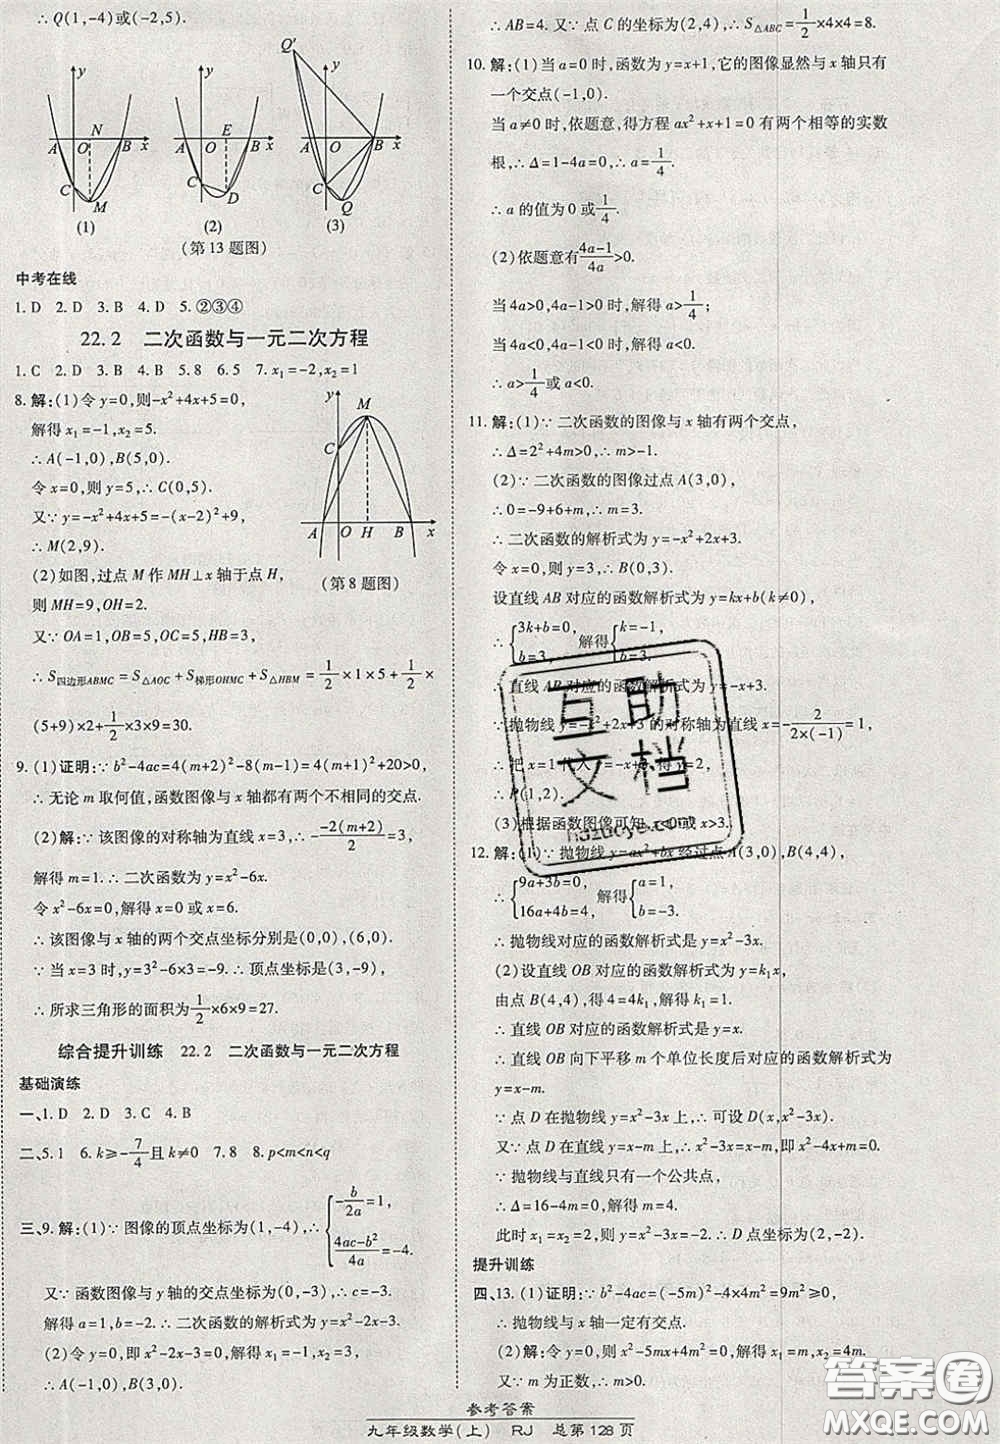 ∴ Q(1,-4)或(-2,5).
Q'
y y y
N E
A O B x A O B x A O B x
C C C
M D Q
(1) (2) (3)
(第13题图)
中考在线
1. D 2. D 3. B 4. D 5. ②③④
22.2 二次函数与一元二次方程
1. C 2. D 3. B 4. B 5. 8 6. 5 7. x₁=-2,x₂=1
8. 解:(1)令 y=0,则-x²+4x+5=0,
解得 x₁=-1,x₂=5.
∴ A(-1,0),B(5,0).
令 x=0,则 y=5,∴ C(0,5).
又∵ y=-x²+4x+5=-(x-2)²+9,
∴ M(2,9).
(2)如图,过点 M 作 MH⊥x 轴于点 H,
则 MH=9,OH=2.
y M
C
A O H B x
(第8题图)
又∵ OA=1,OB=5,OC=5,HB=3,
∴ S四边形ABMC=S△AOC+S梯形OHMC+S△HBM=1/2×1×5+1/2×
(5+9)×2+1/2×3×9=30.
9. (1)证明:∵ b²-4ac=4(m+2)²-8(m-1)=4(m+1)²+20>0,
∴ 无论 m 取何值,函数图像与 x 轴都有两个不相同的交点.
(2)解:∵ 该图像的对称轴为直线 x=3,∴ -(-2(m+2))/2=3,
解得 m=1.∴ 二次函数为 y=x²-6x.
令 x²-6x=0,解得 x=0 或 x=6.
∴ 该图像与 x 轴的两个交点坐标分别是(0,0),(6,0).
∵ 当 x=3 时,y=3²-6×3=-9.∴ 顶点坐标是(3,-9).
∴ 所求三角形的面积为1/2×6×9=27.
综合提升训练 22.2 二次函数与一元二次方程
基础演练
一、1. D 2. D 3. C 4. B
二、5. 1 6. k≥-7/4且 k≠0 7. 8 8. p<m<n<q
三、9. 解:(1)∵ 图像的顶点坐标为(1,-4),∴ {-b/2a=1, (4ac-b²)/4a=-4.
又∵ 函数图像与 y 轴的交点坐标为(0,-3),∴ c=-3.
解得 a=1,b=-2.∴ 二次函数的解析式为 y=x²-2x-3.
(2)令 y=0,即 x²-2x-3=0,解得 x₁=-1,x₂=3,
∴ A(-1,0),B(3,0).
∴ AB=4. 又∵ 点 C 的坐标为(2,4),∴ S△ABC=1/2×4×4=8.
10. 解:(1)当 a=0 时,函数为 y=x+1,它的图像显然与 x 轴只有
一个交点(-1,0).
当 a≠0 时,依题意,得方程 ax²+x+1=0 有两个相等的实数
根,∴ Δ=1-4a=0,∴ a=1/4.
∴ a 的值为 0 或1/4.
(2)依题意有(4a-1)/4a>0.
当 4a>0,4a-1>0 时,解得 a>1/4;
当 4a<0,4a-1<0 时,解得 a<0.
∴ a>1/4或 a<0.
11. 解:(1)∵ 二次函数的图像与 x 轴有两个交点,
∴ Δ=2²+4m>0,∴ m>-1.
(2)∵ 二次函数的图像过点 A(3,0),
∴ 0=-9+6+m,∴ m=3.
∴ 二次函数的解析式为 y=-x²+2x+3.
令 x=0,则 y=3,∴ B(0,3).
设直线 AB 对应的函数解析式为 y=kx+b(k≠0),
∴ {3k+b=0, b=3, 解得{k=-1, b=3.
∴ 直线 AB 对应的函数解析式为 y=-x+3.
∵ 抛物线 y=-x²+2x+3 的对称轴为直线 x=-2/(2×(-1))=1,
∴ 把 x=1 代入 y=-x+3,得 y=2,
∴ P(1,2).
(3)根据函数图像可知 x<0 或 x>3.
12. 解:(1)∵ 抛物线 y=ax²+bx 经过点 A(3,0),B(4,4),
∴ {9a+3b=0, 16a+4b=4, 解得{a=1, b=-3.
∴ 抛物线对应的函数解析式是 y=x²-3x.
(2)设直线 OB 对应的函数解析式为 y=k₁x,
由点 B(4,4),得 4=4k₁,解得 k₁=1.
∴ 直线 OB 对应的函数解析式是 y=x.
∴ 直线 OB 向下平移 m 个单位长度后对应的函数解析式为
y=x-m.
∵ 点 D 在抛物线 y=x²-3x 上,∴ 可设 D(x,x²-3x).
又∵ 点 D 在直线 y=x-m 上,∴ x²-3x=x-m,即 x²-4x+m=0.
∵ 抛物线与直线只有一个公共点,
∴ Δ=16-4m=0,解得 m=4.
此时 x₁=x₂=2,y=x²-3x=-2,∴ D 点坐标为(2,-2).
提升训练
四、13. (1)证明:∵ b²-4ac=(-5m)²-4×4m²=9m²≥0,
∴ 抛物线与 x 轴一定有交点.
(2)解:令 y=0,则 x²-5mx+4m²=0,解得 x₁=m,x₂=4m.
又∵ m 为正数,∴ m>0.
互助
文档
hdzuoye.com
答案圈
MXQE.COM
参考答案
九年级数学(上) RJ 总第128页